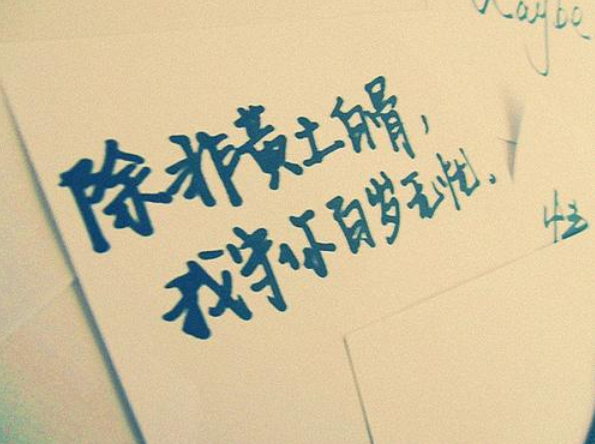 Maybe
除非黄土白骨,
我守你百岁无忧.